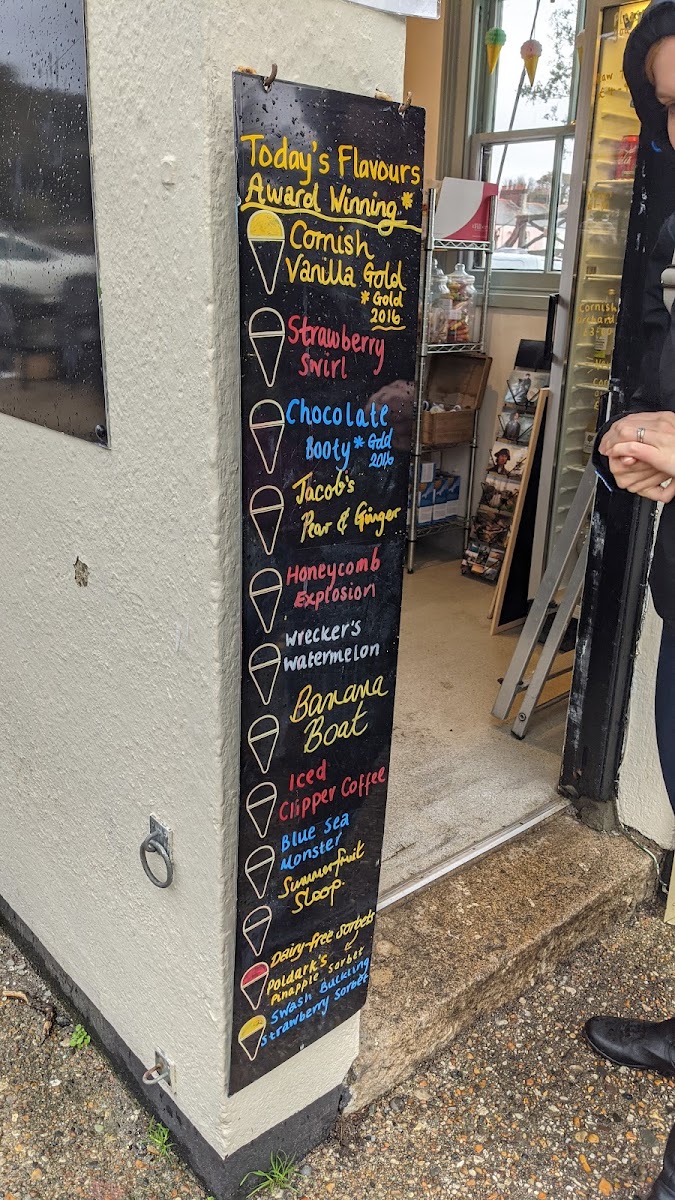 Today's Flavours
Award Winning*
Cornish
Vanilla Gold
*Gold
2016
Strawberry
Swirl
Chocolate
Booty *Gold
2016
Jacob's
Pear & Ginger
Honeycomb
Explosion
Wrecker's
Watermelon
Banana
Boat
Iced
Clipper Coffee
Blue Sea
Monster
Summerfruit
Sloop.
Dairy-free Sorbets
Poldark's
Pinapple Sorbet
Swash Buckling
Strawberry Sorbet
Cornish